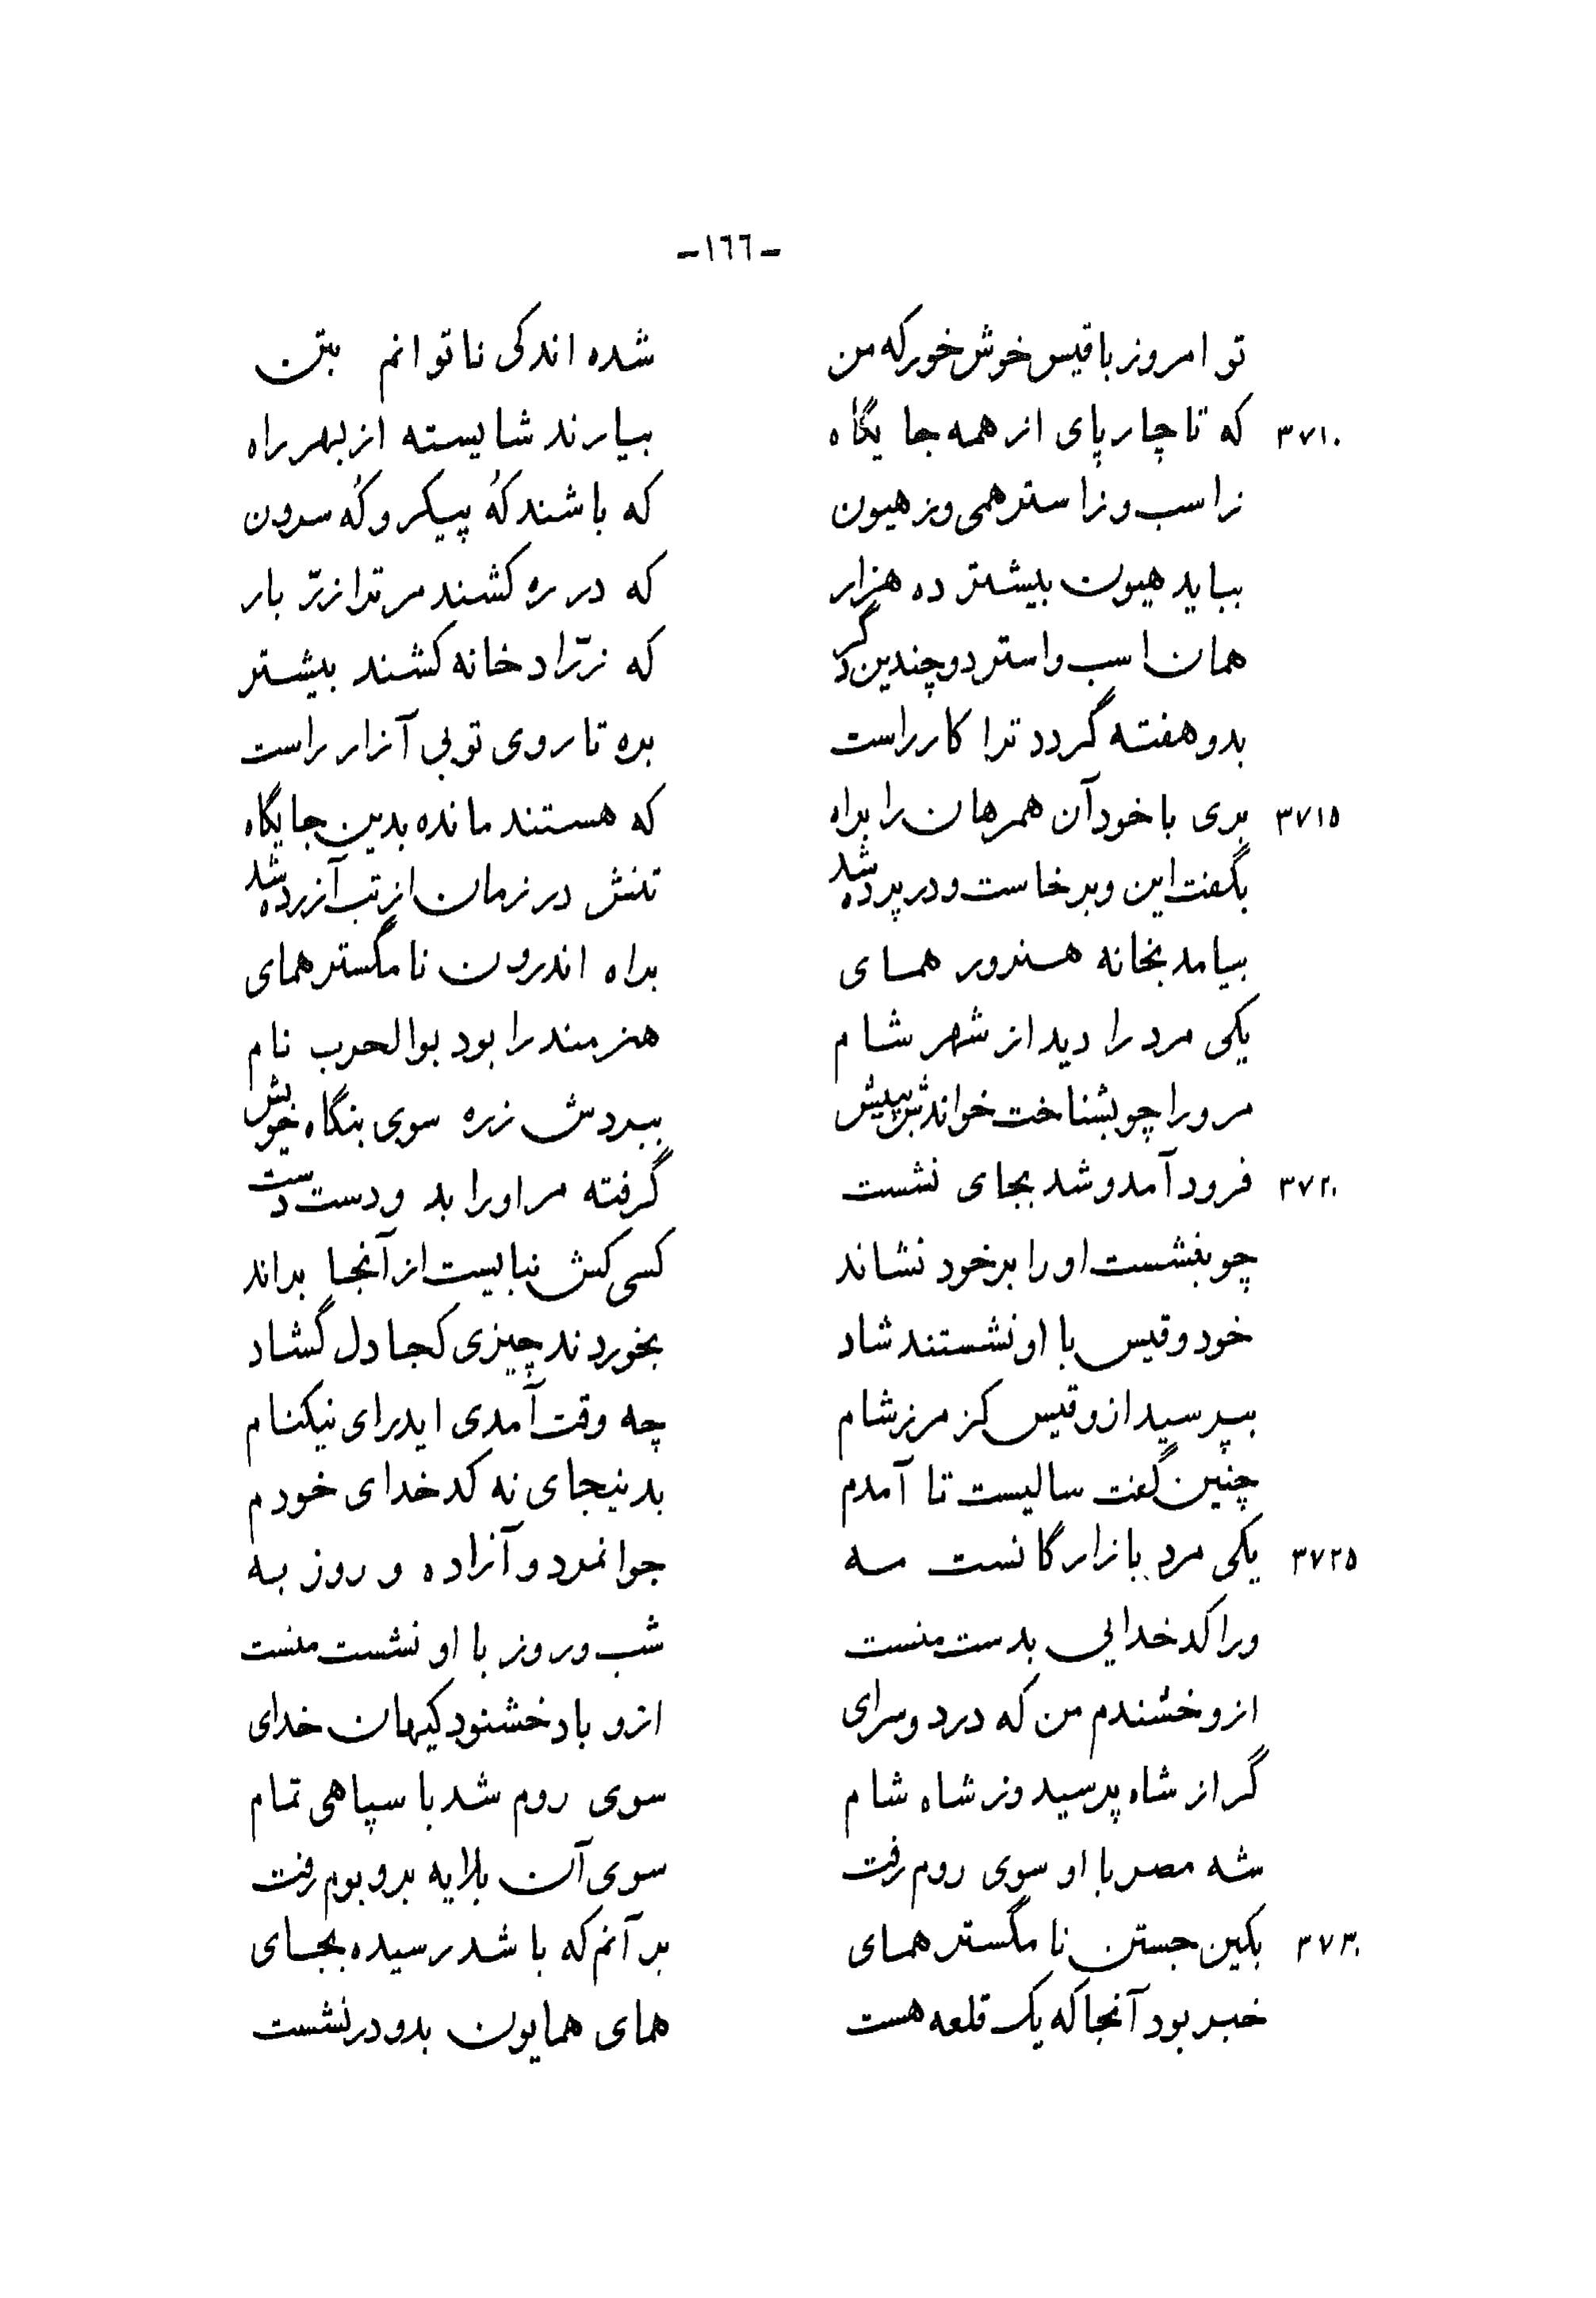 -١٦٦-
تو امروز با قیس خوش خور که من شده اندکی ناتوانم بتن
٣٧١٠ که تا چارپای از همه جایگاه بیارند شایسته از بهر راه
ز اسب و ز استر همی وز هیون که باشند کُه پیکر و کُه سرون
بباید هیون بیشتر ده هزار که در ره کشند مر ترا زرّ بار
همان اسب و استر دو چندین دگر که زرّادخانه کشند بیشتر
بدو هفته گردد ترا کار راست بده تا روی تو بی آزار راست
٣٧١٥ بری با خود آن همرهان را براه که هستند مانده بدین جایگاه
بگفت این و برخاست و در پرده شد تنش در زمان از تب آزرده شد
بیامد بخانه هنرور همای براه اندرون نامگستر همای
یکی مرد را دید از شهر شام هنرمند را بود بوالحرب نام
مر ورا چو بشناخت خواندش بپیش ببردش ز ره سوی بنگاه خویش
٣٧٢٠ فرود آمد و شد بجای نشست گرفته مر او را بد و دست دست
چو بنشست او را بر خود نشاند کسی کش نبایست از آنجا براند
خود و قیس با او نشستند شاد بخوردند چیزی کجا دل گشاد
بپرسید ازو قیس کز مرز شام چه وقت آمدی ایدر ای نیکنام
چنین گفت سالیست تا آمدم بدنیجای نه کدخدای خودم
٣٧٢٥ یکی مرد بازارگانست مه جوانمرد و آزاده و روز به
ورا کدخدایی بدست منست شب و روز با او نشست منست
ازو خشندم من که درد و سرای ازو باد خشنود کیهان خدای
گر از شاه پرسید وز شاه شام سوی روم شد با سپاهی تمام
شه مصر با او سوی روم رفت سوی آن بلایه بر و بوم رفت
٣٧٣٠ بکین جستن نامگستر همای بر آنم که باشد رسیده بجای
خبر بود آنجا که یک قلعه هست همای همایون بدو در نشست